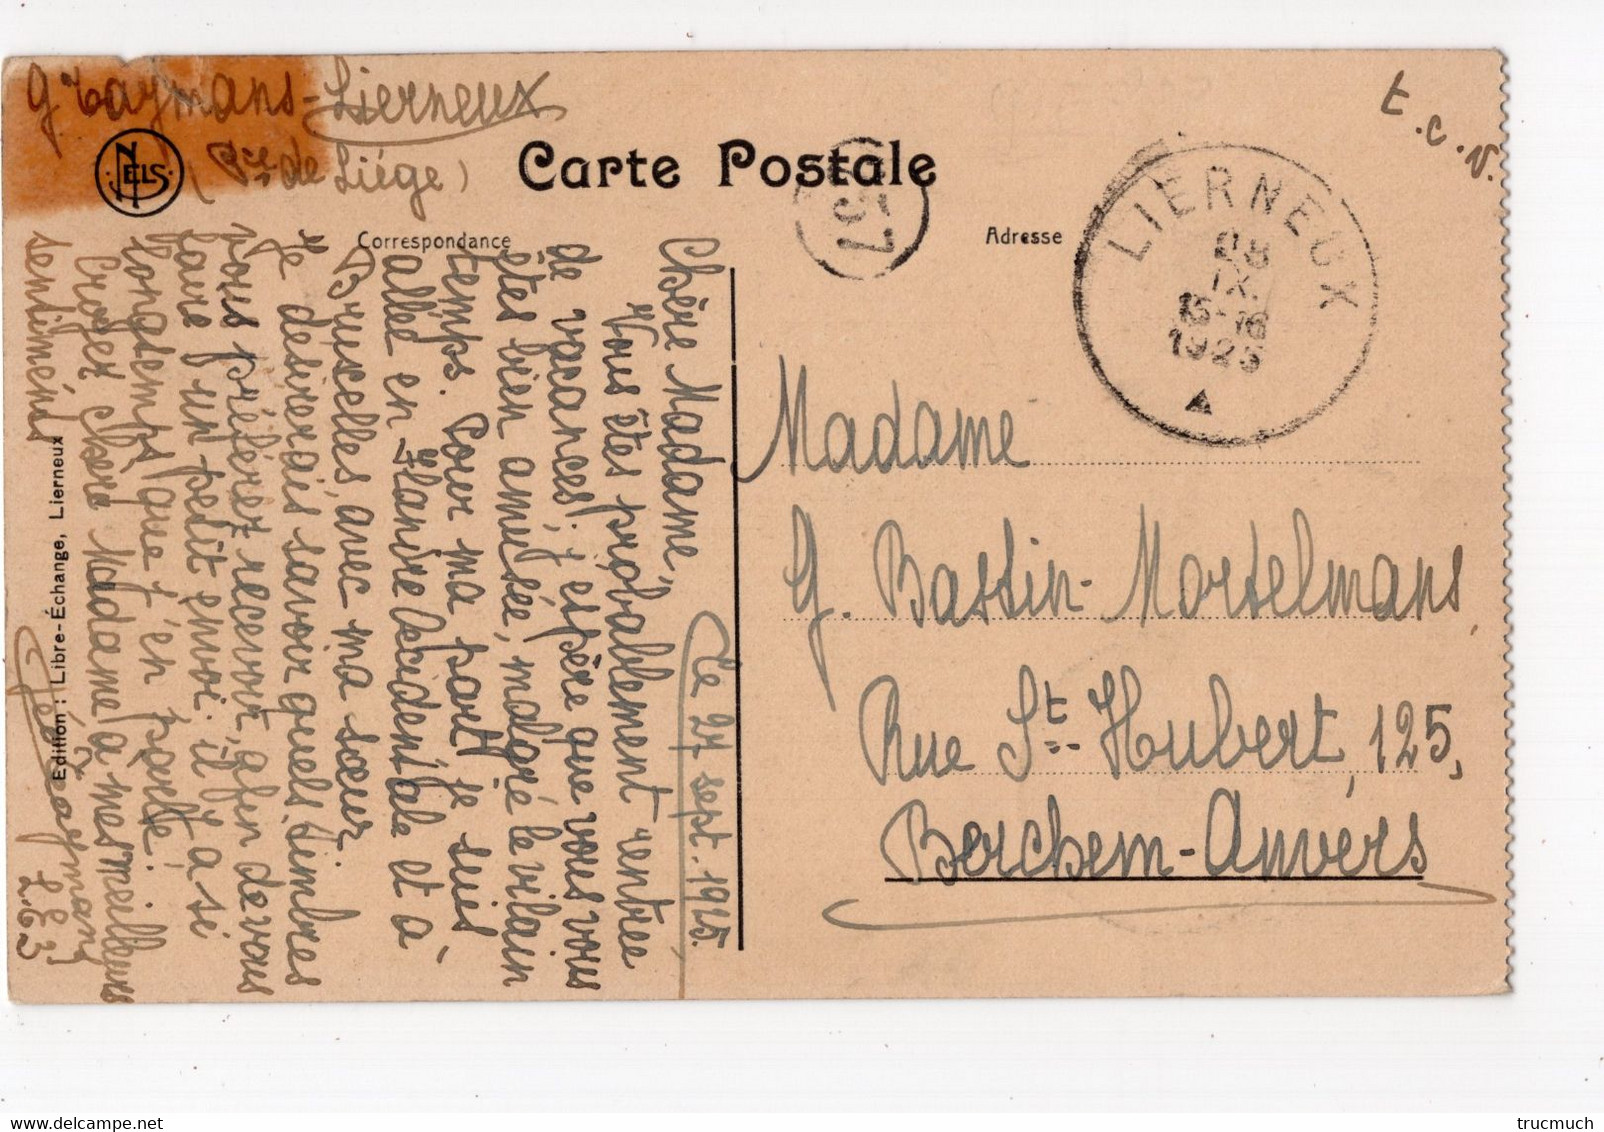 t.c.v.
Taymans-Lierneux
(Pce de Liége)
NELS
Carte Postale
57
Correspondance
Adresse
LIERNEUX
28
IX
15-16
1925
Le 27 sept. 1925.
Chère Madame,
Vous êtes probablement rentrée
de vacances; j'espère que vous vous
êtes bien amusée, malgré le vilain
temps. Pour ma part je suis
allée en Flandre Occidentale et à
Bruxelles, avec ma sœur.
Je desirerais savoir quels timbres
vous préférez recevoir, afin de vous
faire un petit envoi. il y a si
longtemps que j'en parle!
Croyez chère Madame à mes meilleurs
sentiments
Taymans
L.L.
L.63
Edition : Libre-Échange, Lierneux
Madame
G. Bastin-Mortelmans,
Rue St-Hubert, 125,
Berchem-Anvers
trucmuch